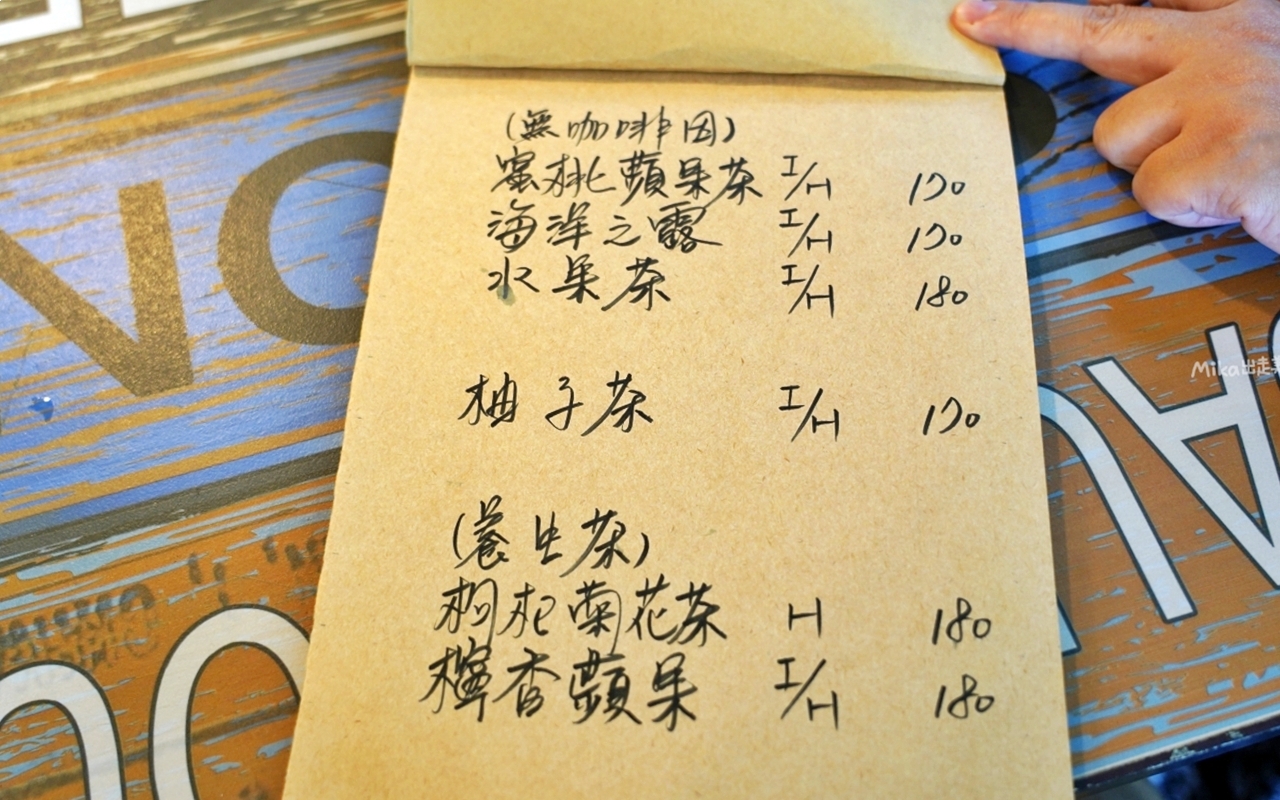 (無咖啡因)
蜜桃蘋果茶 I/H 170
海洋之露 I/H 170
水果茶 I/H 180
柚子茶 I/H 170
(養生茶)
枸杞菊花茶 H 180
檸香蘋果 I/H 180
Mika出走